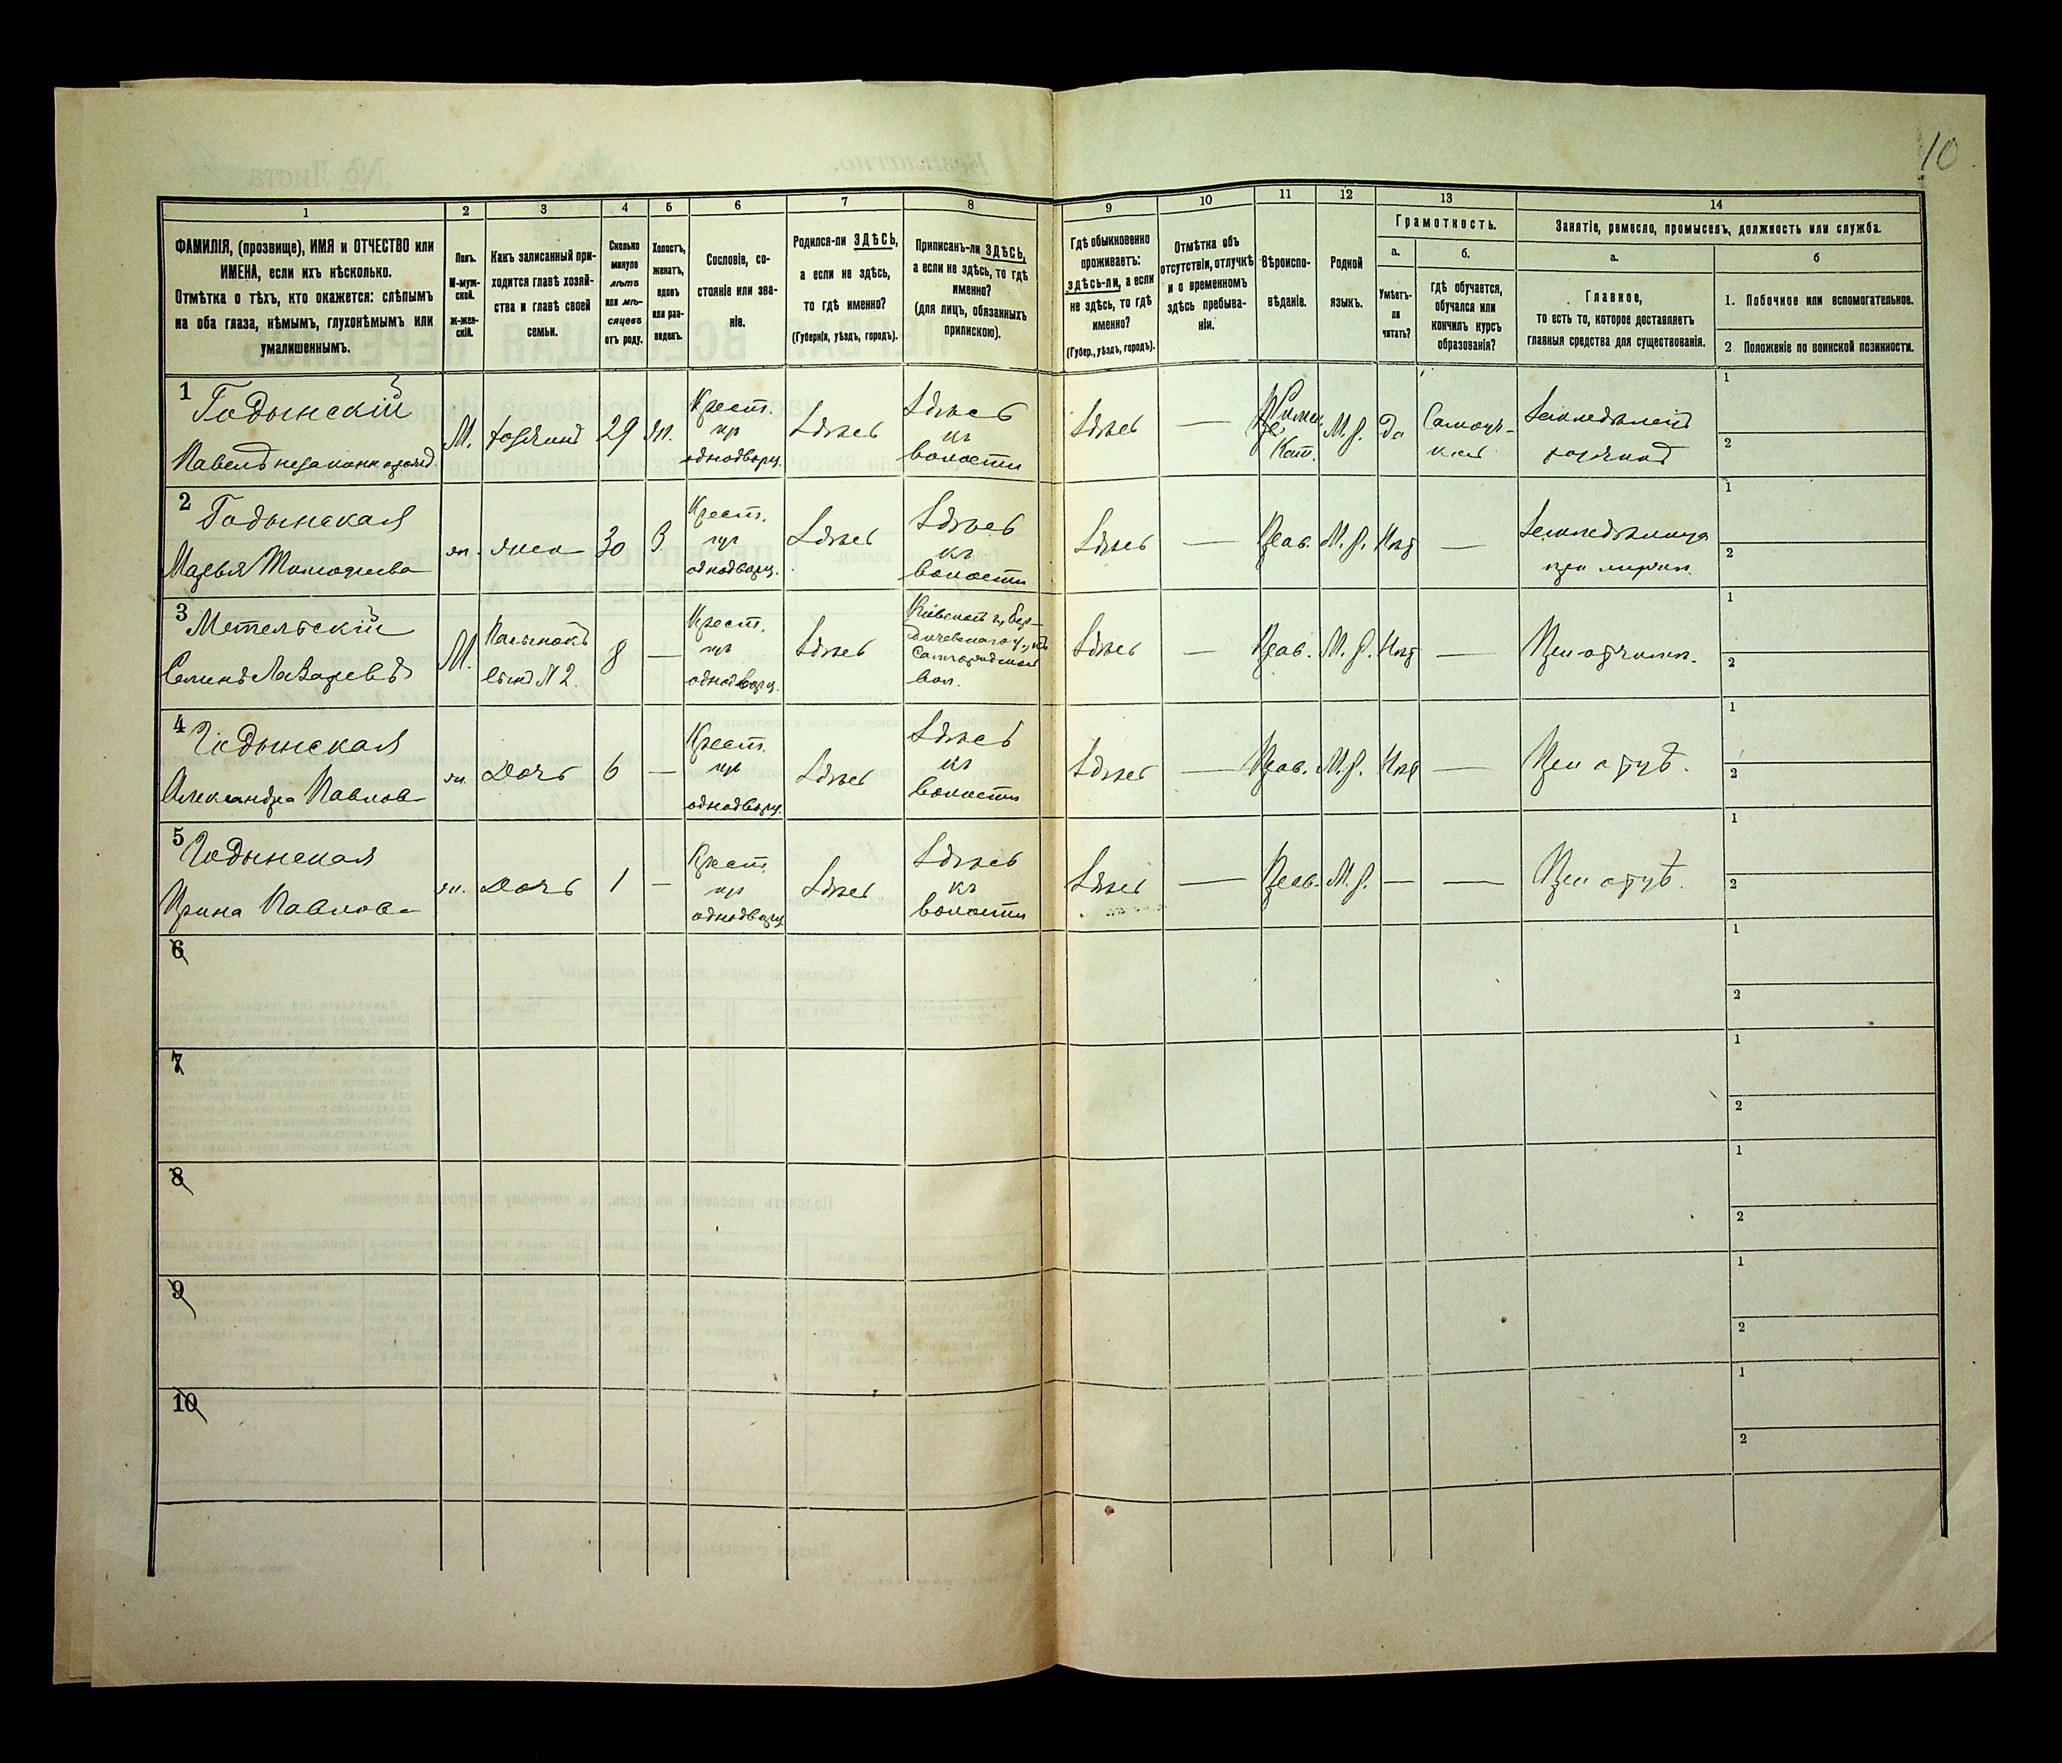 10
1
2
3
4
5
6
7
8
9
10
11
12
13
14
ФАМИЛІЯ, (прозвище), ИМЯ и ОТЧЕСТВО или
ИМЕНА, если ихъ нѣсколько.
Отмѣтка о тѣхъ, кто окажется: слѣпымъ
на оба глаза, нѣмымъ, глухонѣмымъ или
умалишеннымъ.
Полъ.
М-муж-
ской.
Ж-жен-
скій.
Какъ записанный при-
ходится главѣ хозяй-
ства и главѣ своей
семьи.
Сколько
минуло
лѣтъ
или мѣ-
сяцевъ
отъ роду.
Холостъ,
женатъ,
вдовъ
или раз-
веденъ.
Сословіе, со-
стояніе или зва-
ніе.
Родился-ли ЗДѢСЬ,
а если не здѣсь,
то гдѣ именно?
(Губернія, уѣздъ, городъ).
Приписанъ-ли ЗДѢСЬ,
а если не здѣсь, то гдѣ
именно?
(для лицъ, обязанныхъ
припискою).
Гдѣ обыкновенно
проживаетъ:
здѣсь-ли, а если
не здѣсь, то гдѣ
именно?
(Губер., уѣздъ, городъ).
Отмѣтка объ
отсутствіи, отлучкѣ
и о временномъ
здѣсь пребыва-
ніи.
Вѣроиспо-
вѣданіе.
Родной
языкъ.
Грамотность.
а.
Умѣетъ-
ли
читать?
б.
гдѣ обучается,
обучался или
кончилъ курсъ
образованія?
Занятіе, ремесло, промыселъ, должность или служба.
а.
Главное,
то есть то, которое доставляетъ
главныя средства для существованія.
б
1. Побочное или вспомогательное.
2 Положеніе по воинской повинности.
1
Годынскій
Павелъ незаконнорожд.
М.
хозяинъ
29
Ж.
Крест.
из
однодворц.
Здѣсь
Здѣсь
къ
волости
Здѣсь
—
Римск.
Кат.
М. р.
Да
Самоуч-
кой
Земледѣлецъ
хозяинъ
1
2
2
Годынская
Марья Тимофеева
ж.
жена
30
З.
Крест.
из
однодворц.
Здѣсь
Здѣсь
къ
волости
Здѣсь
—
Прав.
М. р.
Нѣтъ
—
Земледѣлица
при мужѣ.
1
2
3
Метельскій
Семенъ Лазаревъ
М.
Пасынокъ
сынъ N 2.
8
—
Крест.
из
однодворц.
Здѣсь
Кіевской г., Бер-
дичевскаго у., къ
вол.
Здѣсь
—
Прав.
М. р.
Нѣтъ
При отчимѣ.
1
2
4
Годынская
Александра Павлов-
ж.
Дочь
6
—
Крест.
из
однодворц.
Здѣсь
Здѣсь
къ
волости
Здѣсь
—
Прав.
М. р.
Нѣтъ
—
При отцѣ.
1
2
5
Годынская
Ирина Павлов-
ж.
Дочь
1
—
Крест.
из
однодворц.
Здѣсь
Здѣсь
къ
волости
Здѣсь
—
Прав.
М. р.
—
—
При отцѣ.
1
2
6
1
2
7
1
2
8
1
2
9
1
2
10
1
2